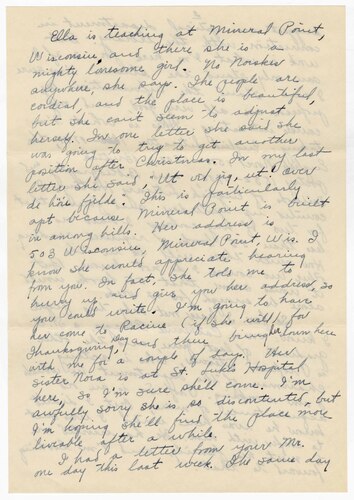 Ella is teaching at Mineral Point,
Wisconsin, and there she is a
mighty lonesome girl. No Norskes
anywhere, she says. The people are
cordial, and the place is beautiful,
but she can't seem to adjust
herself. In one letter she said she
was going to try to get another
position after Christmas. In my last
letter she said, "Ut vil jeg, ut! over
de höie fjelde." This is particularly
apt because Mineral Point is built
in among hills. Her address is
503 Wisconsin, Mineral Point, Wis. I
know she would appreciate hearing
from you. In fact, she told me to
hurry up and give you her address, so
you could write. I'm going to have
her come to Racine (if she will) for
Thanksgiving Day and then bring down here
with me for a couple of days. Her
sister Nora is at St. Luke's Hospital
here, so I'm sure she'll come. I'm
awfully sorry she is so discontented, but
I'm hoping she'll find the place more
liveable after a while.
I had a letter from your Mr.
one day this last week. The same day